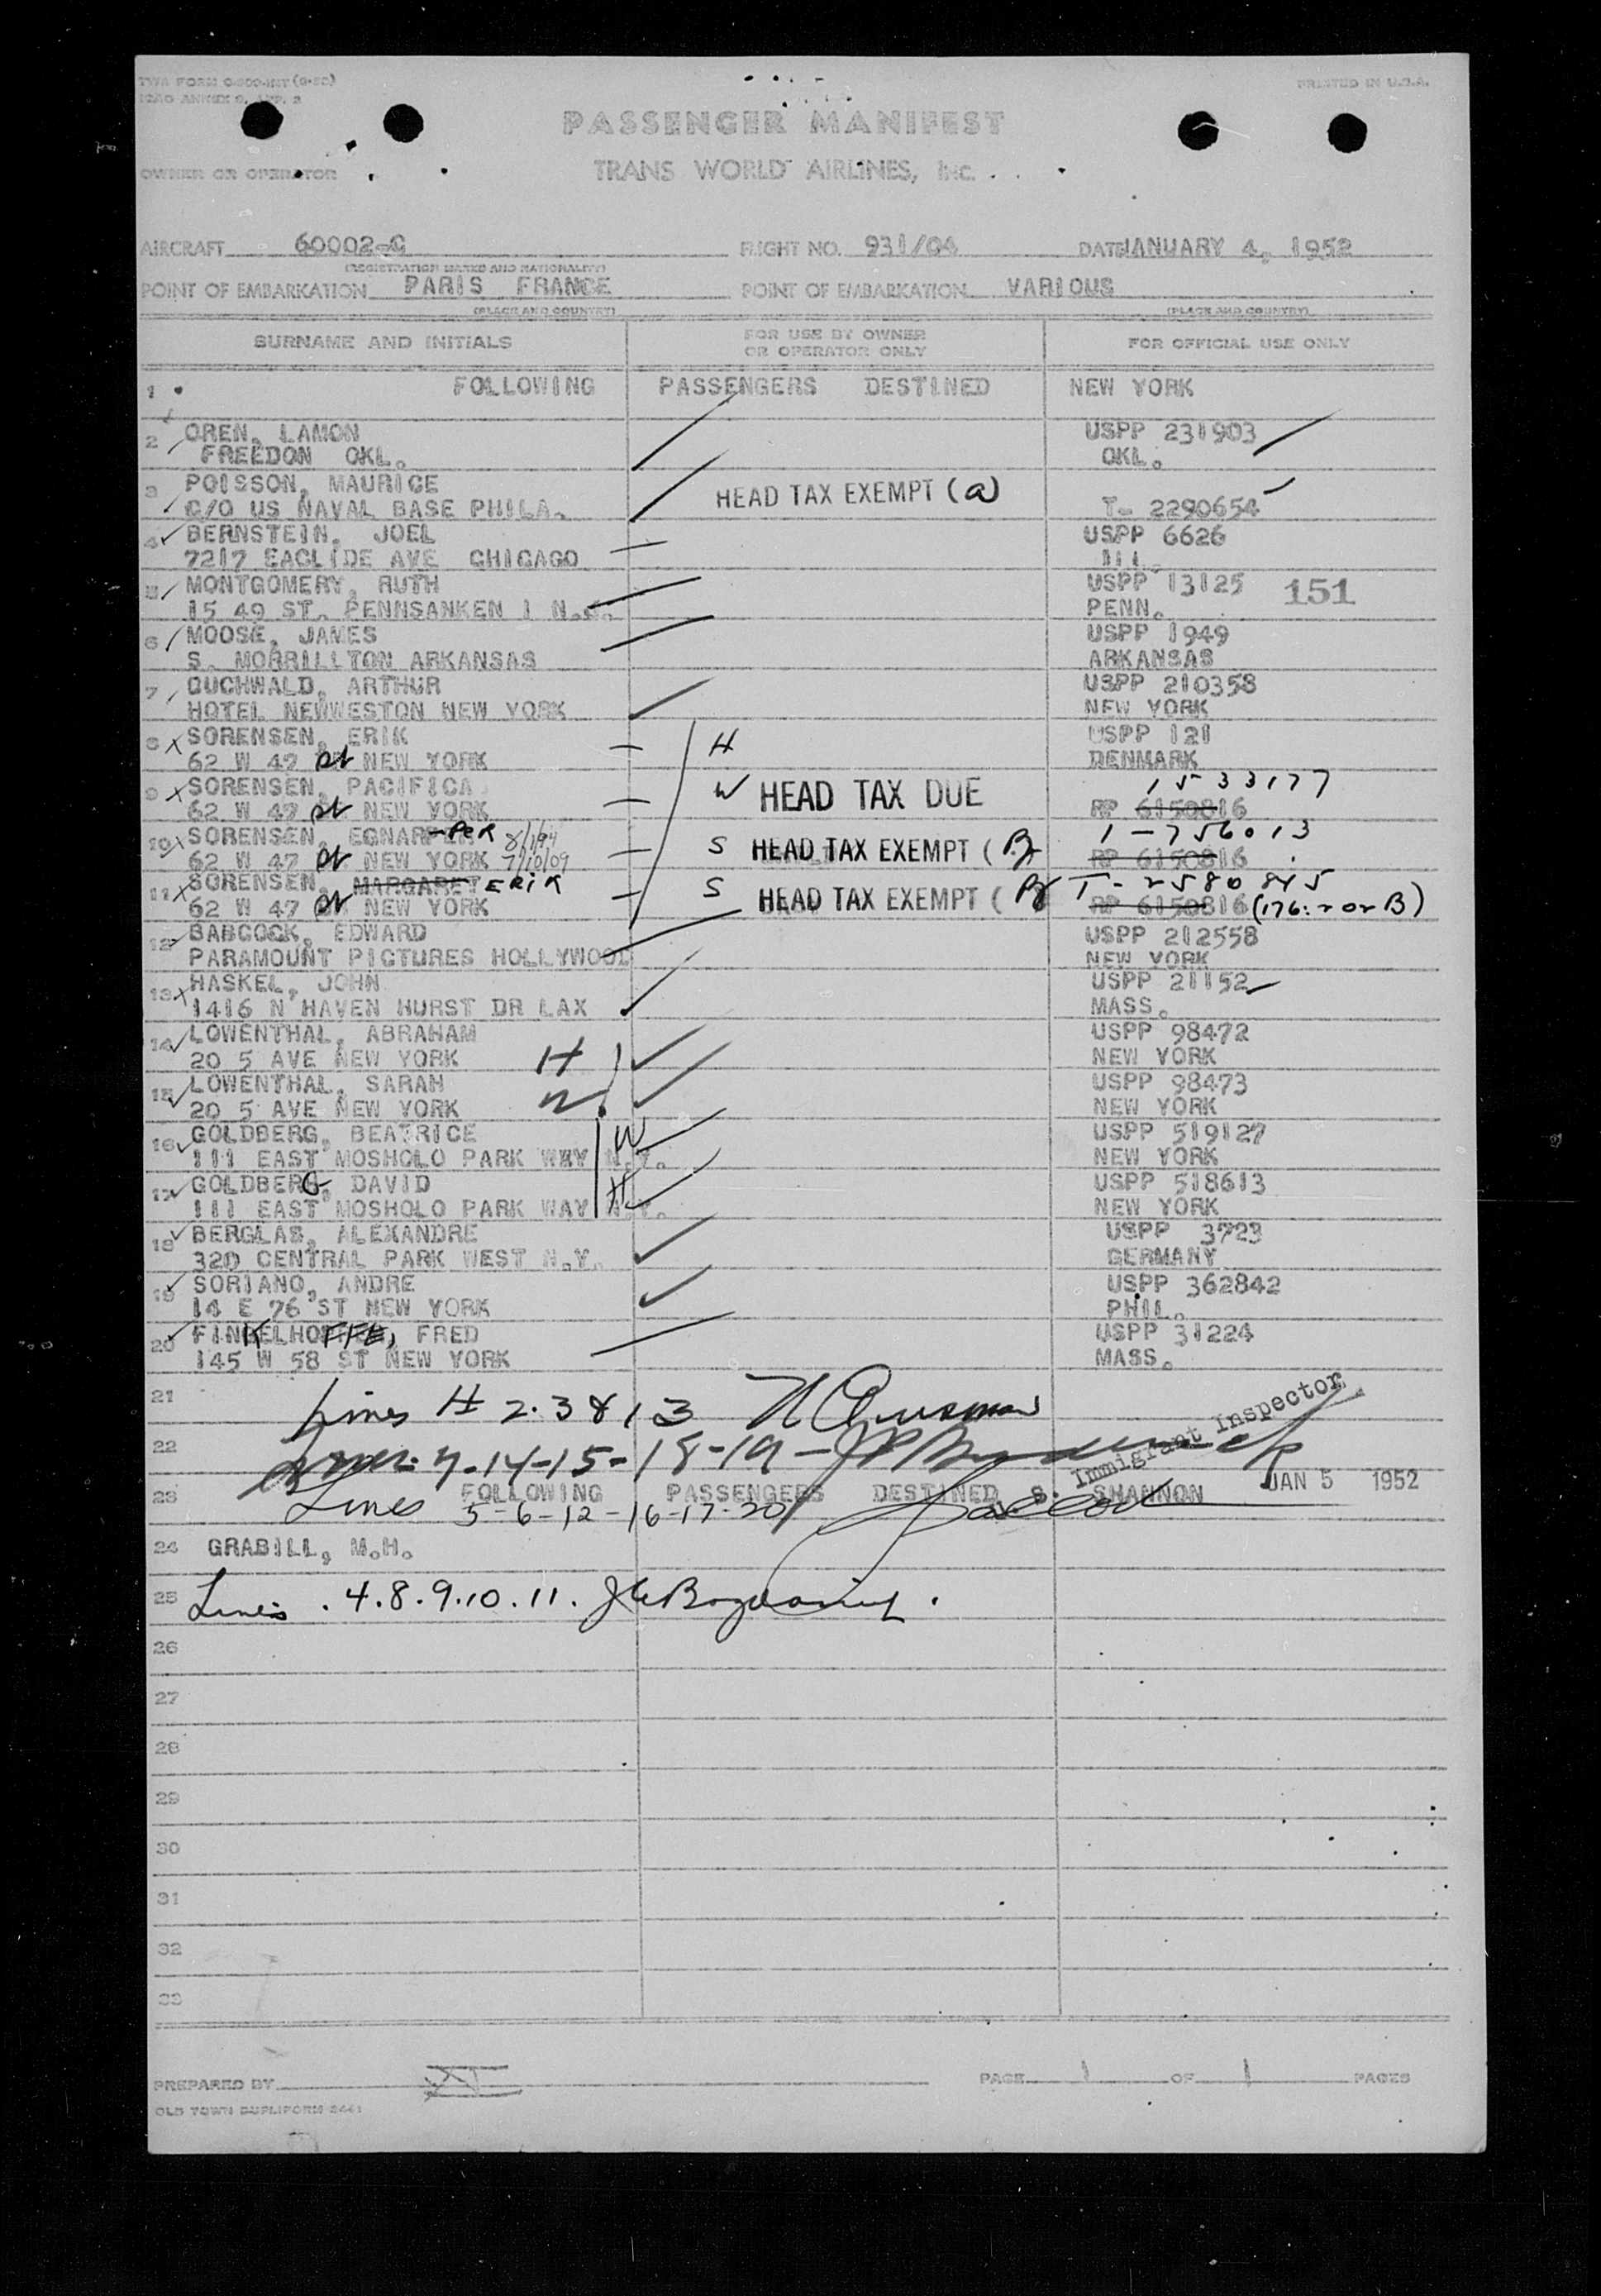 TWA FORM O-900-INT (9-50) PRINTED IN U.S.A.
ICAO ANNEX 9, APP. 2
PASSENGER MANIFEST
OWNER OR OPERATOR TRANS WORLD AIRLINES, INC.
AIRCRAFT 60002-C FLIGHT NO. 931/04 DATE JANUARY 4, 1952
(REGISTRATION MARKS AND NATIONALITY)
POINT OF EMBARKATION PARIS FRANCE POINT OF EMBARKATION VARIOUS
(PLACE AND COUNTRY) (PLACE AND COUNTRY)
SURNAME AND INITIALS FOR USE BY OWNER OR OPERATOR ONLY FOR OFFICIAL USE ONLY
1 FOLLOWING PASSENGERS DESTINED NEW YORK
2 OREN, LAMON USPP 231903
FREEDON OKL. OKL.
3 POISSON, MAURICE HEAD TAX EXEMPT (a)
C/O US NAVAL BASE PHILA. T- 2290654
4 BERNSTEIN, JOEL USPP 6626
7217 EACLIDE AVE CHICAGO Ill.
5 MONTGOMERY, RUTH USPP 13125 151
15 49 ST. PENNSANKEN 1 N.J. PENN.
6 MOOSE, JAMES USPP 1949
S. MORRILLTON ARKANSAS ARKANSAS
7 BUCHWALD, ARTHUR USPP 210358
HOTEL NEWWESTON NEW YORK NEW YORK
8 SORENSEN, ERIK H USPP 121
62 W 47 St NEW YORK DENMARK
9 SORENSEN, PACIFICA W HEAD TAX DUE 1533177
62 W 47 St NEW YORK RP 6150816
10 SORENSEN, EGNARPER -PER 8/1/94 S HEAD TAX EXEMPT (B) 1-756013
62 W 47 St NEW YORK 7/10/09 RP 6150816
11 SORENSEN, MARGARET ERIK S HEAD TAX EXEMPT (B) T-2580845
62 W 47 St NEW YORK RP 6150816 (176:2 or B)
12 BABCOCK, EDWARD USPP 212558
PARAMOUNT PICTURES HOLLYWOOD NEW YORK
13 HASKEL, JOHN USPP 21152
1416 N HAVEN HURST DR LAX MASS.
14 LOWENTHAL, ABRAHAM USPP 98472
20 5 AVE NEW YORK H NEW YORK
15 LOWENTHAL, SARAH USPP 98473
20 5 AVE NEW YORK W NEW YORK
16 GOLDBERG, BEATRICE W USPP 519127
111 EAST MOSHOLO PARK WAY N.Y. NEW YORK
17 GOLDBERG, DAVID H USPP 518613
111 EAST MOSHOLO PARK WAY N.Y. NEW YORK
18 BERGLAS, ALEXANDRE USPP 3723
320 CENTRAL PARK WEST N.Y. GERMANY
19 SORIANO, ANDRE USPP 362842
14 E 76 ST NEW YORK PHIL.
20 FINKELHOFFE, FRED USPP 31224
145 W 58 ST NEW YORK MASS.
21 Lines # 2.3 & 13
Immigrant Inspector
22 Lines 7-14-15-18-19-
JAN 5 1952
23 FOLLOWING PASSENGERS DESTINED SHANNON
Lines 5-6-12-16-17-20
24 GRABILL, M.H.
25 Lines . 4.8.9.10.11.
26
27
28
29
30
31
32
33
PREPARED BY PAGE 1 OF 1 PAGES
OLD TOWN DUPLIFORM 2441